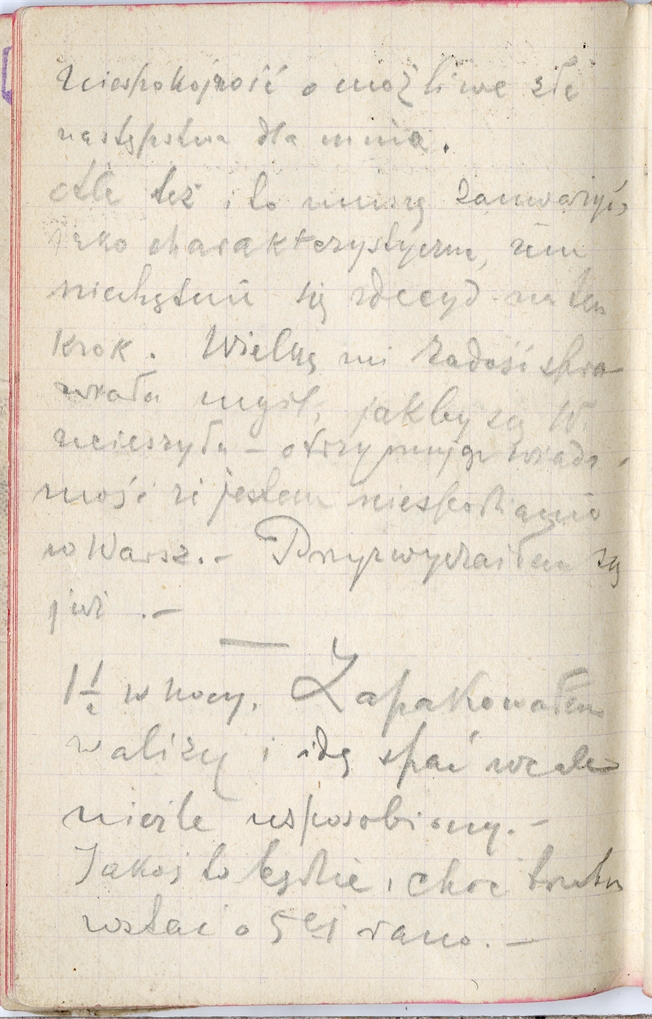 niespokojność o możliwe złe
następstwa dla mnie.
Ale też i to muszę zauważyć,
jako charakterystyczne, że
niechętnie się zdecyd. na ten
krok. Wielką mi radość spra-
wiała myśl, jakby się W.
ucieszyła – otrzymując wiado-
mość że jestem niespodzianie
w Warsz. – Przyzwyczaiłem się
już . –
1 1/2 w nocy. Zapakowałem
walizy i idę spać wcale
nieźle usposobiony. –
Jakoś to będzie, choć trzeba
wstać o 5ej rano. –